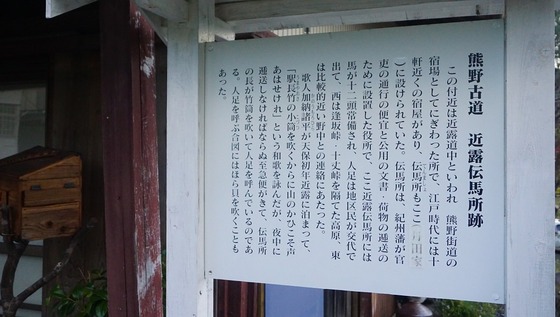 熊野古道　近露伝馬所跡
この付近は近露道中といわれ　熊野街道の
宿場としてにぎわった所で、江戸時代には十
軒近くの宿屋があり、伝馬所もここ(
)に設けられていた。伝馬所は、紀州藩が官
吏の通行の便宜と公用の文書・荷物の逓送の
ために設置した役所で、ここ近露伝馬所には
馬が十二頭常備され、人足は地区民が交代で
出て、西は逢坂峠・十丈峠を隔てた高原、東
は比較的近い野中との連絡にあたった。
歌人加納諸平が天保初年近露に泊まって、
「駅長竹の小筒を吹くからに山のかひこそ声
あはせけれ」という和歌を詠んだが、夜中に
逓送しなければならぬ至急便がきて、伝馬所
の長が竹筒を吹いて人足を呼んでいるのであ
る。人足を呼ぶ合図にはほら貝を吹くことも
あった。